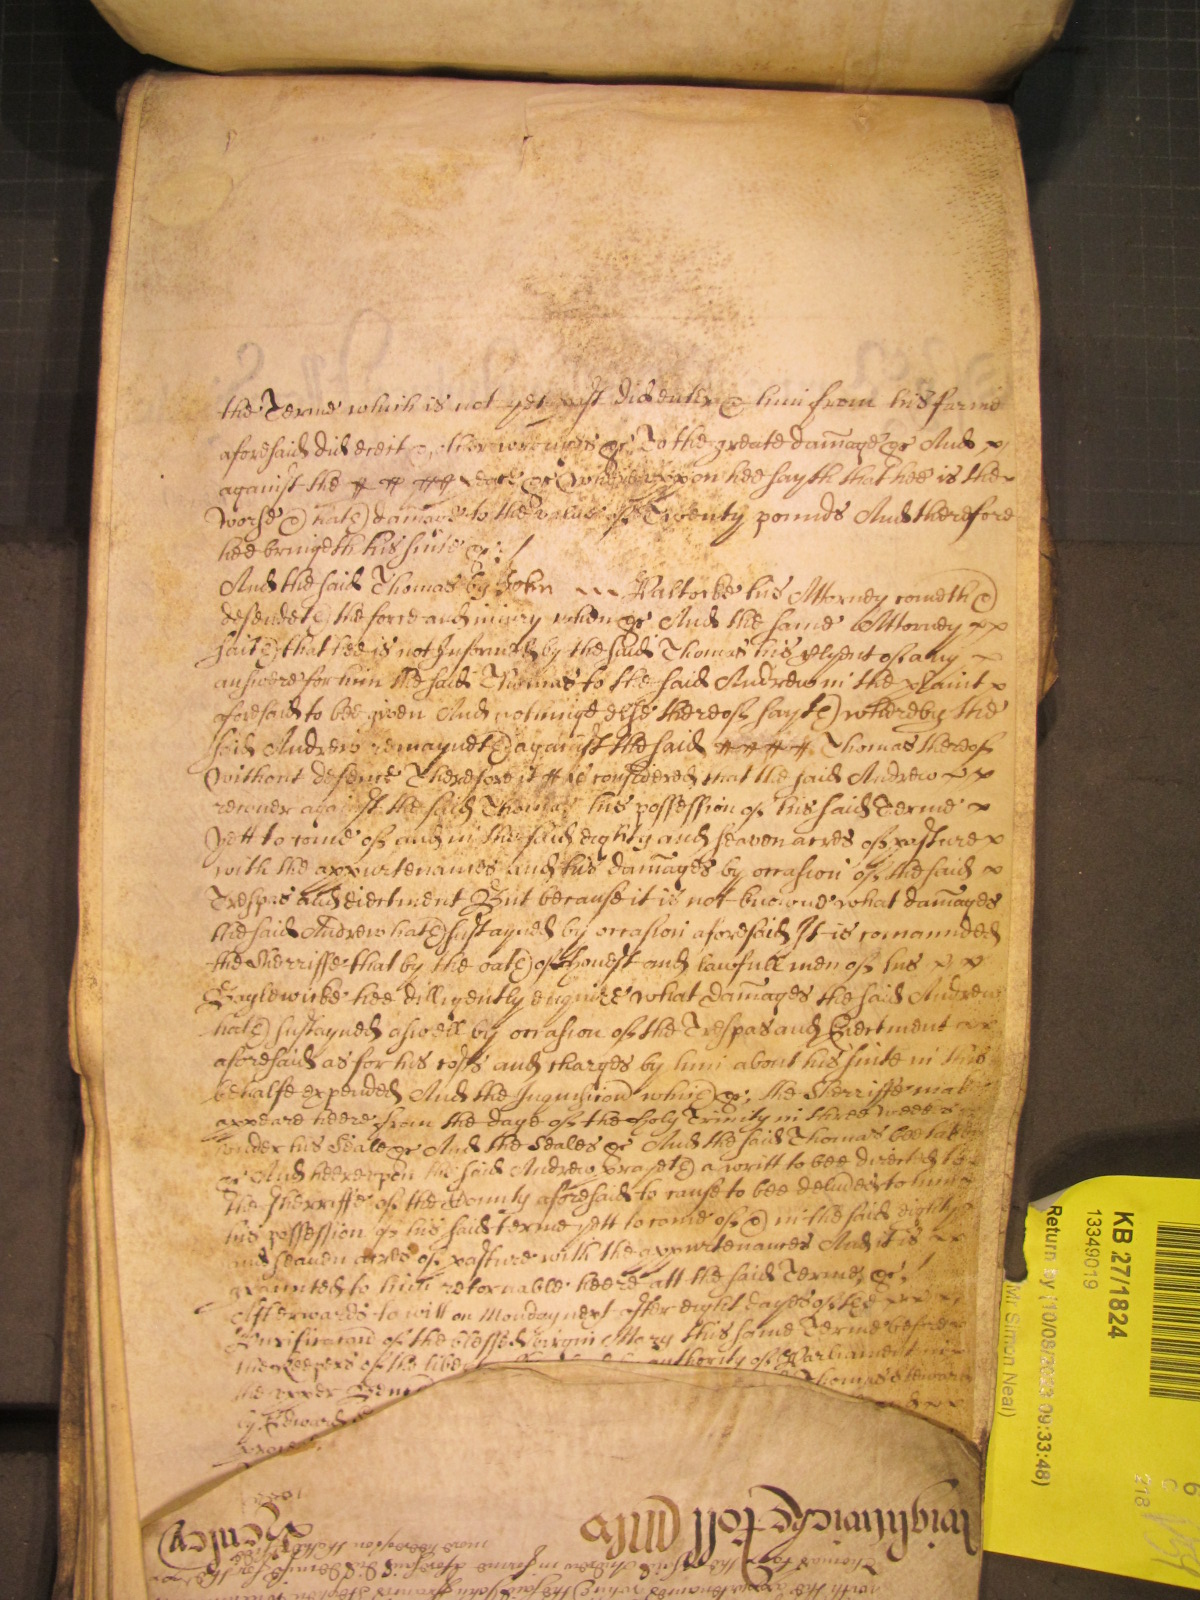 the Terme which is not yet past did enter & him from his farme
aforesaid did eiect & other wronges &c To the greate damage &c And
against the peace &c Whereupon hee sayth that hee is the
worse & hath damage to the value of Twenty pounds And therefore
hee bringeth his suite &c
And the said Thomas by John Paltocke his Attorney cometh &
defendeth the force and iniury when &c And the same Attorney
saith that hee is not Informed by the said Thomas his Clyent of any
answere for him the said Thomas to the said Andrew in the plaint
aforesaid to bee given And nothinge else thereof sayth whereby the
said Andrew remayneth against the said Thomas thereof
without defence Therefore it is considered that the said Andrew
recover against the said Thomas his possession of his said Terme
yett to come of and in the said eighty and seaven acres of pasture
with the appurtenances and his damages by occasion of the said
Trespas and eiectment But because it is not knowne what damages
the said Andrew hath sustayned by occasion aforesaid It is comaunded
the Sherriffe that by the oath of honest and lawfull men of his
Baylewicke hee dilligently enquire what damages the said Andrew
hath sustayned aswell by occasion of the Trespas and Eiectment
aforesaid as for his costs and charges by him about his suite in this
behalfe expended And the Inquisicion which &c the Sherriffe make
appeare heere from the daye of the holy Trinity in three weekes
under his Seale &c And the Seales &c And the said Thomas bee taken
&c And heereupon the said Andrew prayeth a writt to bee directed to
the Sherriffe of the County aforesaid to cause to bee delivered to him
his possession of his said terme yett to come of & in the said eighty
and seaven acres of pasture with the appurtenances And it is
graunted to him retornable heere att the said Terme, &c
Afterwards to witt on Monday next after eight dayes of the
Purificacion of the blessed virgin Mary this same Terme before
the keepers of the libe authority of Parliament
the upper Ben Thomas Steward
by Edward
KB 27/1824
13349019
Return by (10/08/2023 09:33:48)
(Mr Simon Neal)